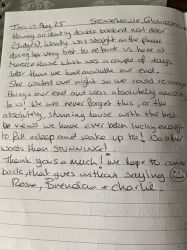 This is Aug 25 Stonehouse, Gloucester
Having accidently double booked next door
(Judy's), Wendy was straight on the phone
doing her very best to rebook us here at
House which was a couple of days
later than we had available our end.
She wanted our night so we found
things our end and was absolutely amazing
to us! We are never forget this, or the
absolutely, stunning house with the best
views we have ever been lucky enough
to fall asleep and wake up to! No other
words than STUNNING!
Thank you so much! We hope to come
back, that goes without saying
Rose, Brendan & Charlie.